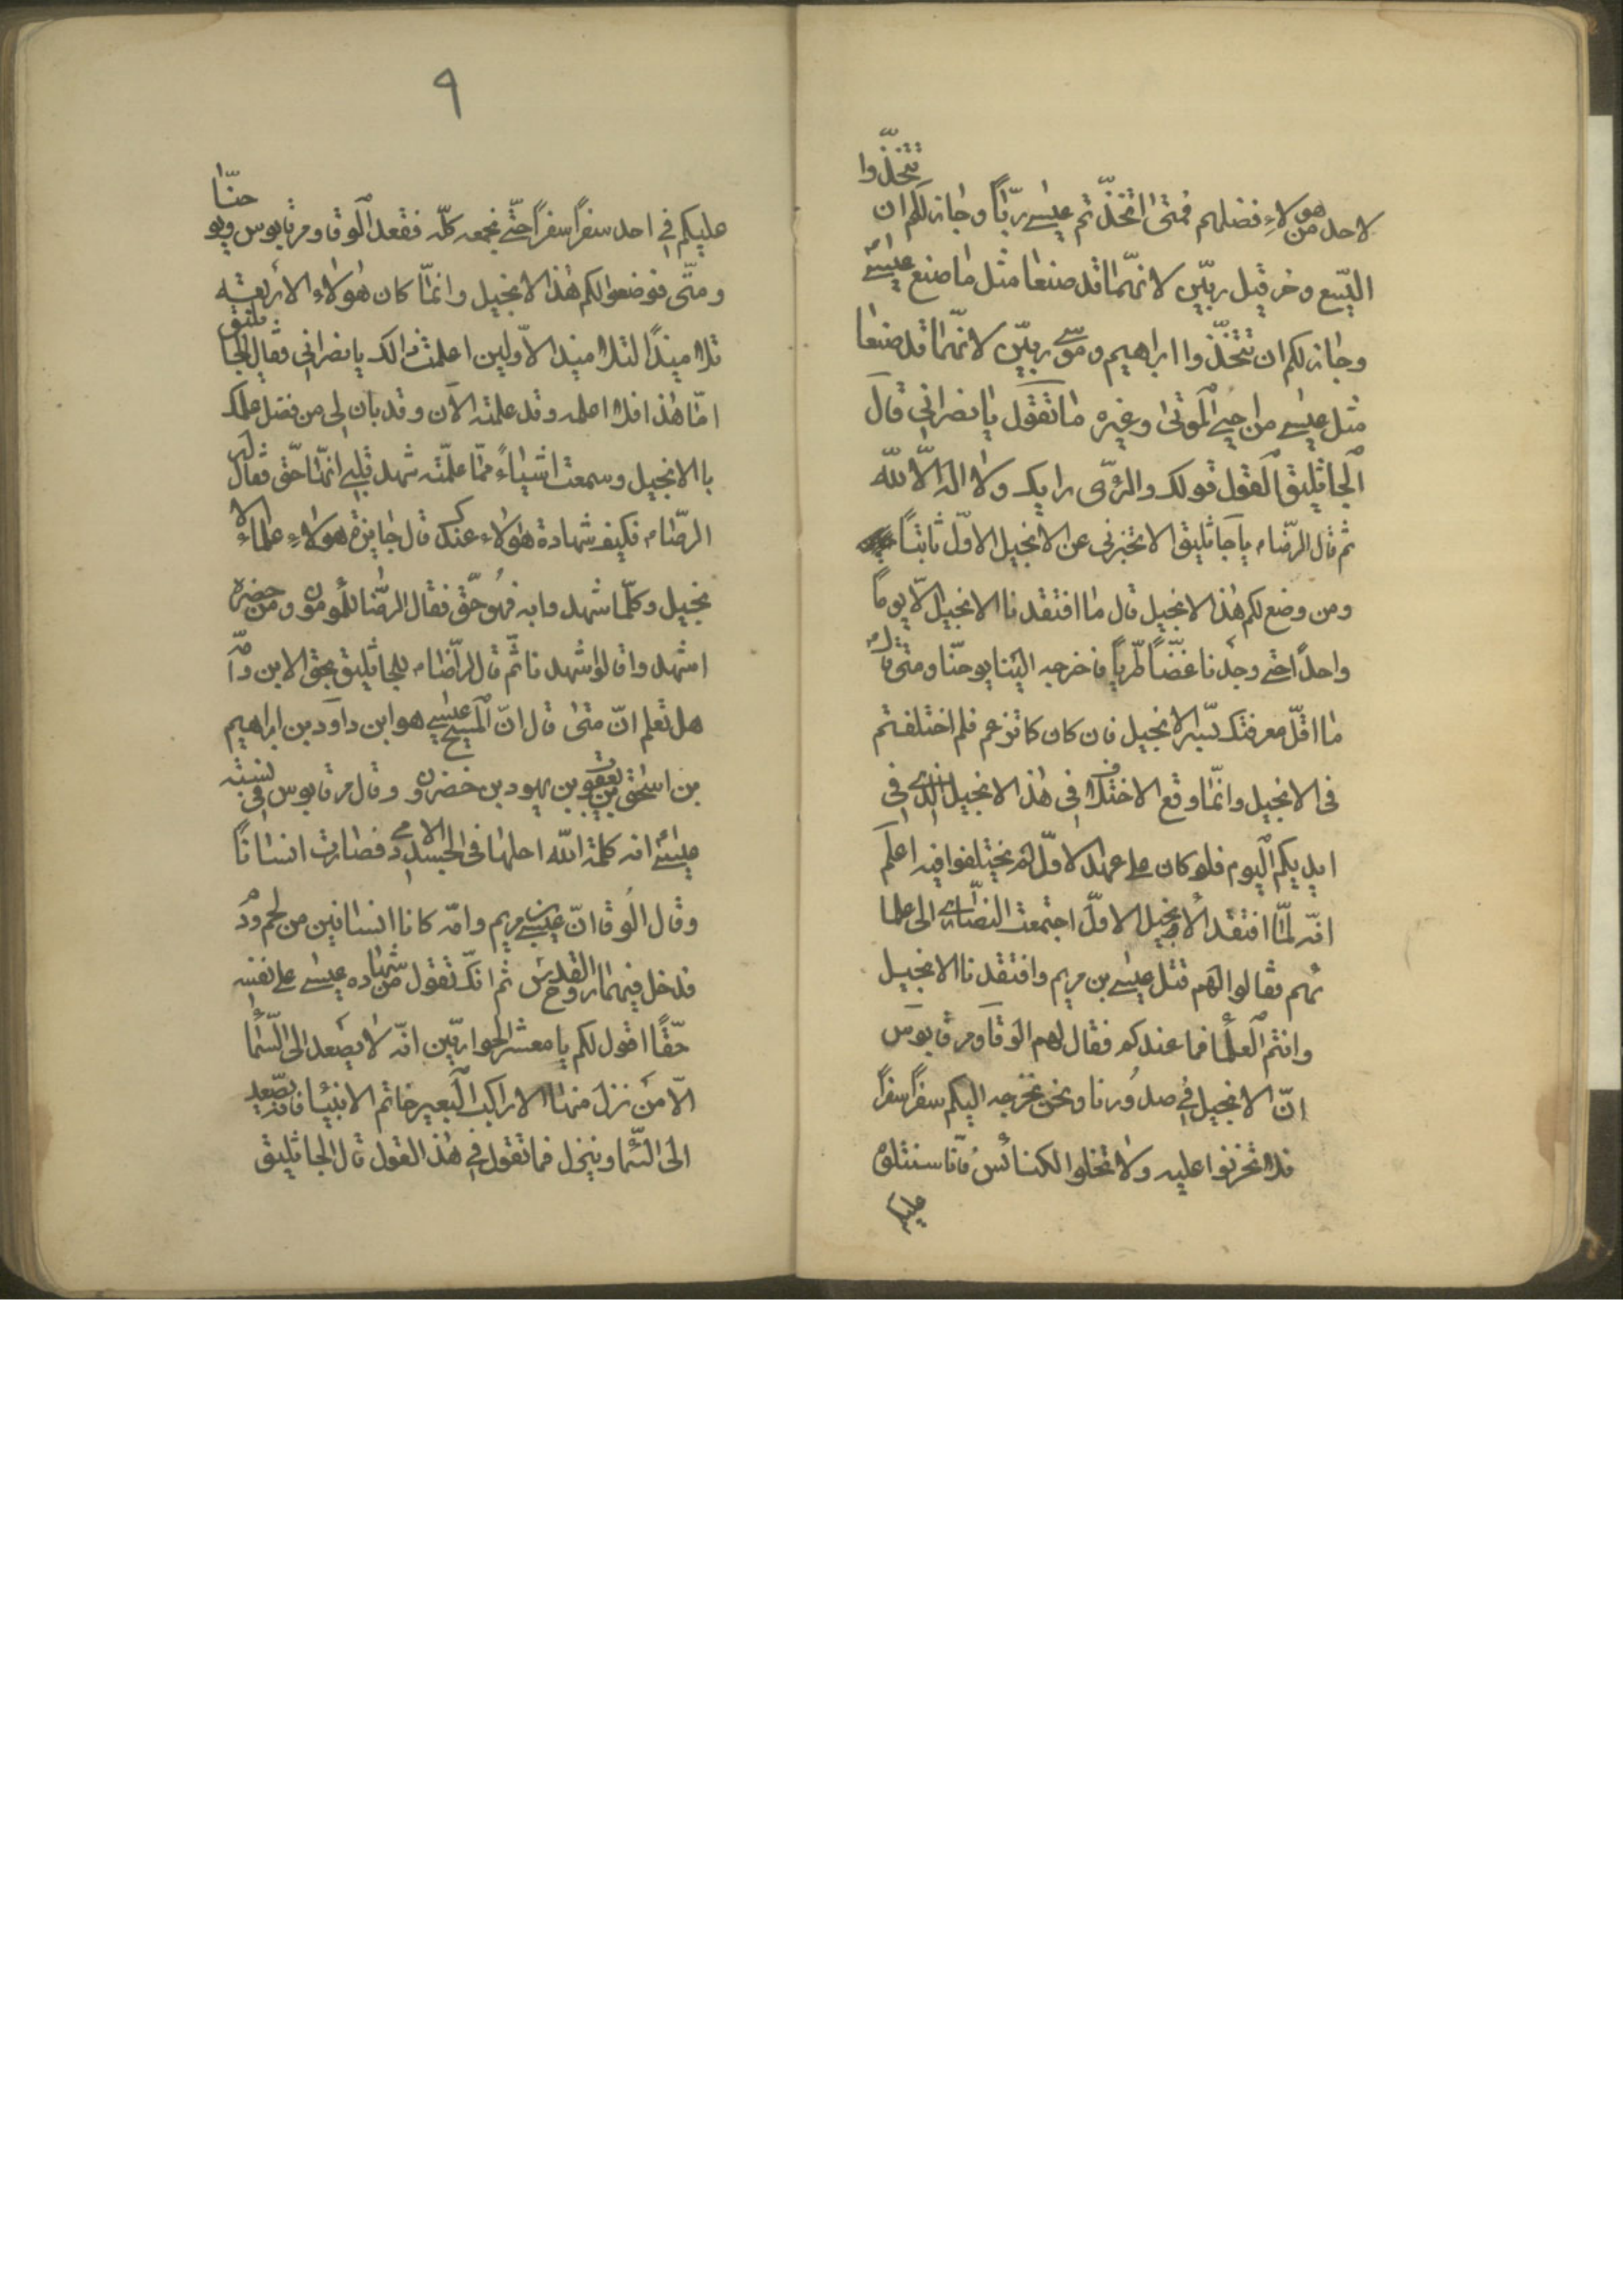 تتخذّوا
لاحد من هولاءِ فضلهم فمتى اتخذّتم عيسٰى ربّاً وجٰاز لكم ان
اليّسع وخرقيل ربيّن لانهّمٰا قد صنعٰا مثل مٰا صنع عيسٰى
وجٰاز لكم ان تتخّذوا ابراهيم وموسٰى ربيّن لانهّمٰا قد صنعٰا
مثل عيسٰى من احيٰى الموتىٰ وغيره مٰا تقول يٰا نصرانى قال
الجاثليق القول قولك والرّى رايك ولا الٰه الّا الله
ثم قال الرضّا م يا جاثليق الا تخبرنى عن الانجيل الاوّل ثابتاً
ومن وضع لكم هٰذ الانجيل قال مٰا افتقدنا الانجيل الّا يومًا
واحدًا حتى وجدنا غضّاً طريّاً فاخرجه الينا يوحنّا ومتى قال م
مٰا اقلّ معرفتك بسّر الانجيل فان كان كا تزعم فلم اختلفتم
فى الانجيل وانمّٰا وقع الاختلاف فى هٰذ الانجيل الذى فى
ايديكم اليوم فلو كان على عهد الاوّل لم يختلفوا فيه اعلم
انهّ لمّٰا افتقد الانجيل الاوّل اجتمعت النصّارٰى الى علما
ئهم فقالوا لهم قتل عيسٰى بن مريم وافتقدنا الانجيل
وانتم العلمأ فما عندكم فقال لهم الوقا ومرقابوس
انّ الانجيل فى صدُورنا ونحن نخرجه اليكم سفرًا سفرًا
فلا تحزنوا عليه ولا تخلوا الكنائس فانّا سنتلوه
عليكم
٩
حنّٰا
عليكم فى احد سفرًا سفرًا حتّى نجمعه كلّه فقعد الوقا ومرقابوس ويو
ومتّى فوضعوا لكم هٰذ الانجيل وانمّٰا كان هٰولاء الاربعة
تلاميذًا لتلاميذ الاوّلين اعلمت ذالك يا نصرانى فقال الجٰاثليق
امّا هٰذا فلا اعلمه وقد علمته الآن وقد بان لى من فضل علمك
باالانجيل وسمعت اشياءً ممّا علمّته شهد قلبى انهّٰا حّق فقال له
الرضّٰا م فكيف شهادة هٰولاء عندك قال جٰايزة هولاءِ علماء الا
نجيل وكلّما شهد وابه فهُو حّق فقال الرضّا للمأمون ومن حضره
اشهد وا قالوا شهدنا ثّم قال الرضّا م للجاثليق بحق الابن وامّه
هل تعلم انّ متىٰ قال انّ المسيح عيسٰى هو ابن داود بن ابراهيم
بن اسحٰق بن يعقوب بن يهود بن خضرون وقال مرقابوس فى نسبته
عيسٰى انه كلمة الله احلها فى الجسد الادمى فصارت انسانًا
وقال الُوقا انّ عيسٰى بن مريم وامّه كانا انسانين من لحم ودم
فدخل فيهمٰا روح القدس ثم انكّ تقول من شهٰاده عيسٰى على نفسه
حقًّا اقول لكم يا معشر الحواريّين انهّ لا يصعد الى السّمٰأ
الاّ من نزل منهٰا الا راكب البعير خاتم الانبيأ فانه يصّعد
الى السّمأ وينزل فما تقول فى هٰذ القول قال الجاثليق